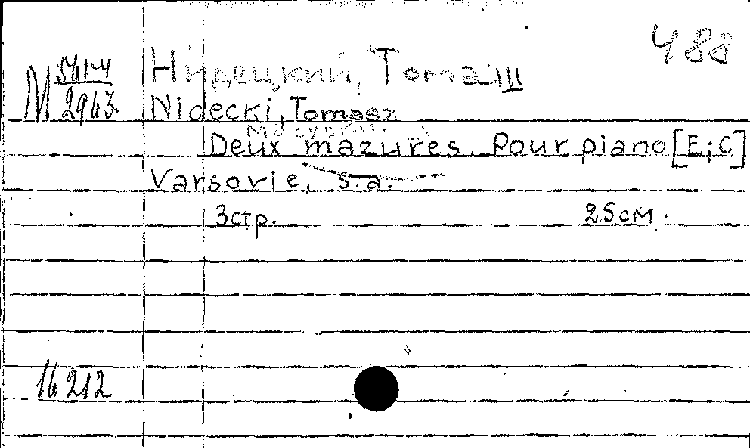 488
М 561-4
2963
Нидецкий, Томаш
Nidecki, Tomasz
Мазурки
Deux mazures. Pour piano [E; C]
Varsovie, s.a.
3 стр. 25 см.
16212